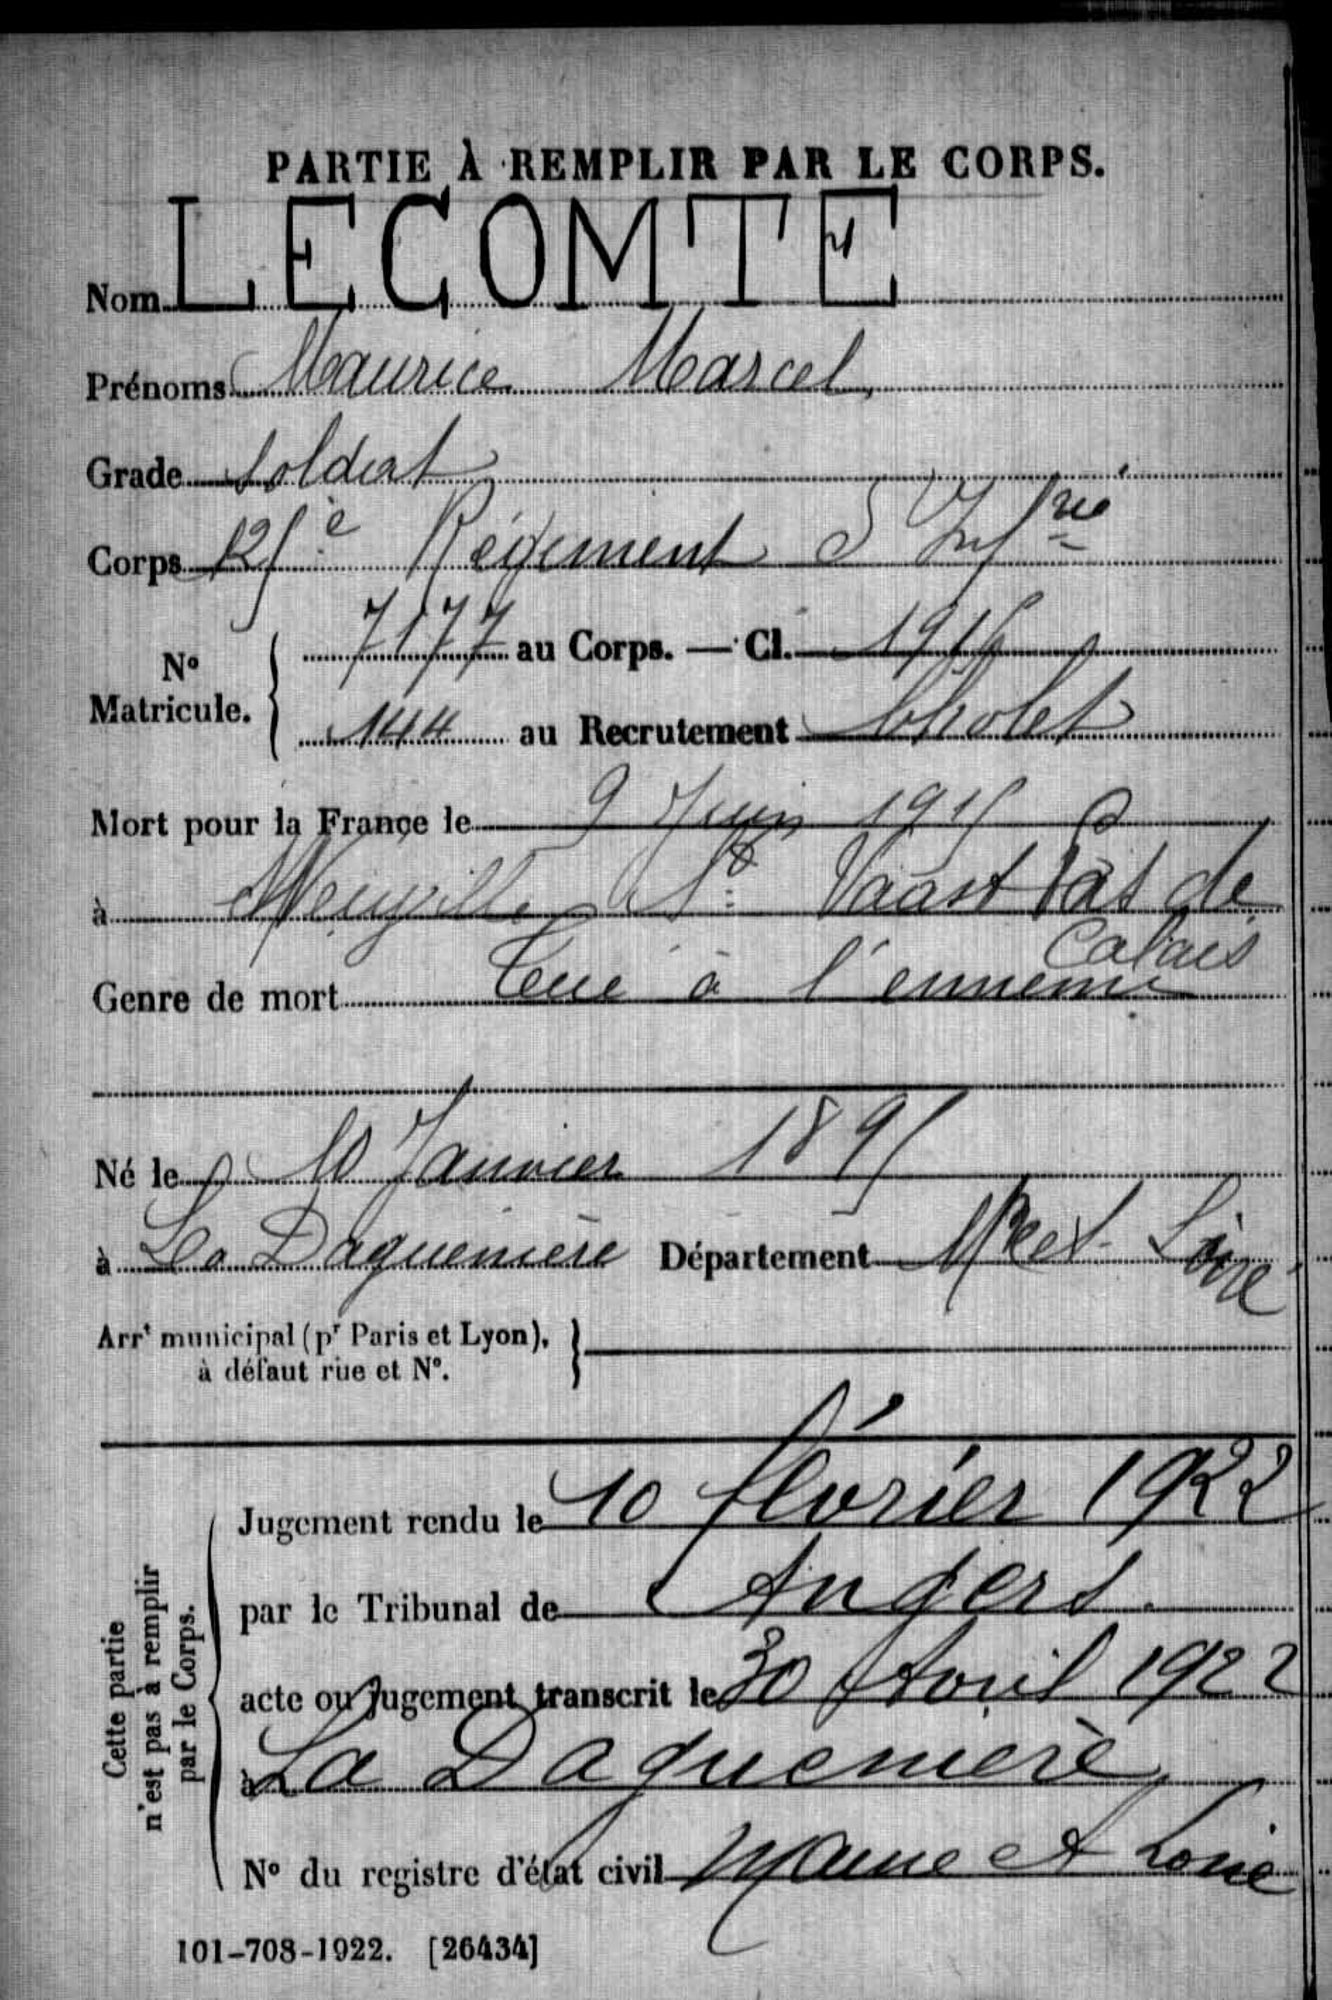 PARTIE À REMPLIR PAR LE CORPS.
Nom LECOMTE
Prénoms Maurice Marcel
Grade Soldat
Corps Régiment d'Infrie
N° Matricule.
7177 au Corps. — Cl. 1915
144 au Recrutement Cholet
Mort pour la France le 9 Juin 1915
à Neuville St Vaast Pas de Calais
Genre de mort Tué à l'ennemi
Né le 10 Janvier 1895
à La Daguenière Département M et Loire
Arrt municipal (pr Paris et Lyon),
à défaut rue et N°.
Cette partie
n'est pas à remplir
par le Corps.
Jugement rendu le 10 février 1922
par le Tribunal de Angers.
acte ou jugement transcrit le 30 Avril 1922
à La Daguenière
N° du registre d'état civil Maine et Loire
101-708-1922. [26434]